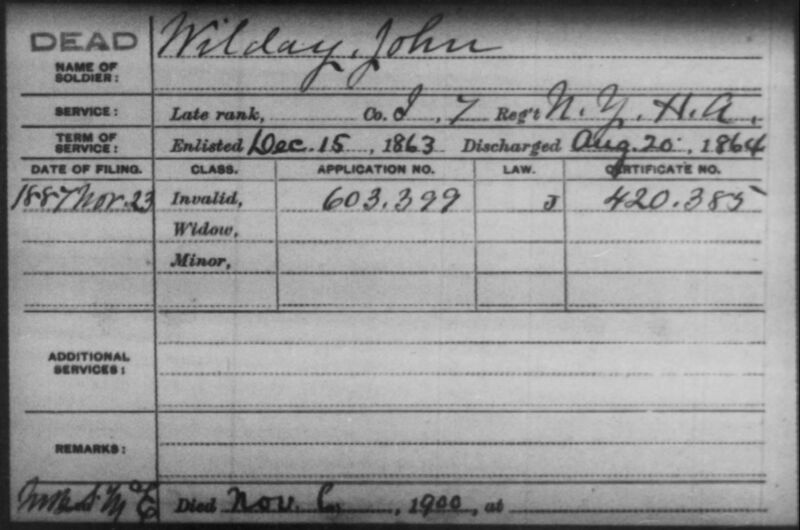 DEAD
Wilday, John
NAME OF SOLDIER:
SERVICE: Late rank, Co. I, 7 Reg't N. Y. H. A.
TERM OF SERVICE: Enlisted Dec. 15, 1863 Discharged Aug. 20, 1864
DATE OF FILING. CLASS. APPLICATION NO. LAW. CERTIFICATE NO.
1887 Nov. 23 Invalid, 603.399 J 420.385
Widow,
Minor,
ADDITIONAL SERVICES:
REMARKS:
Died Nov. 6, 1900, at